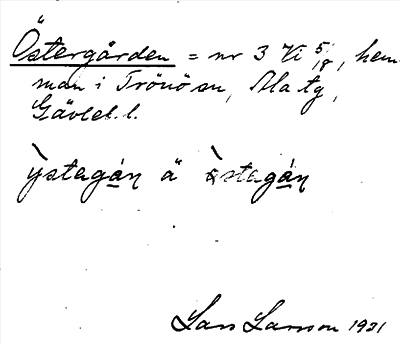 Östergården = nr 3 Vi 5/18, hem-
man i Trönö sn, Ala tg,
Gävleb. l.
ỳstagán ä östagán
Lars Larsson 1921